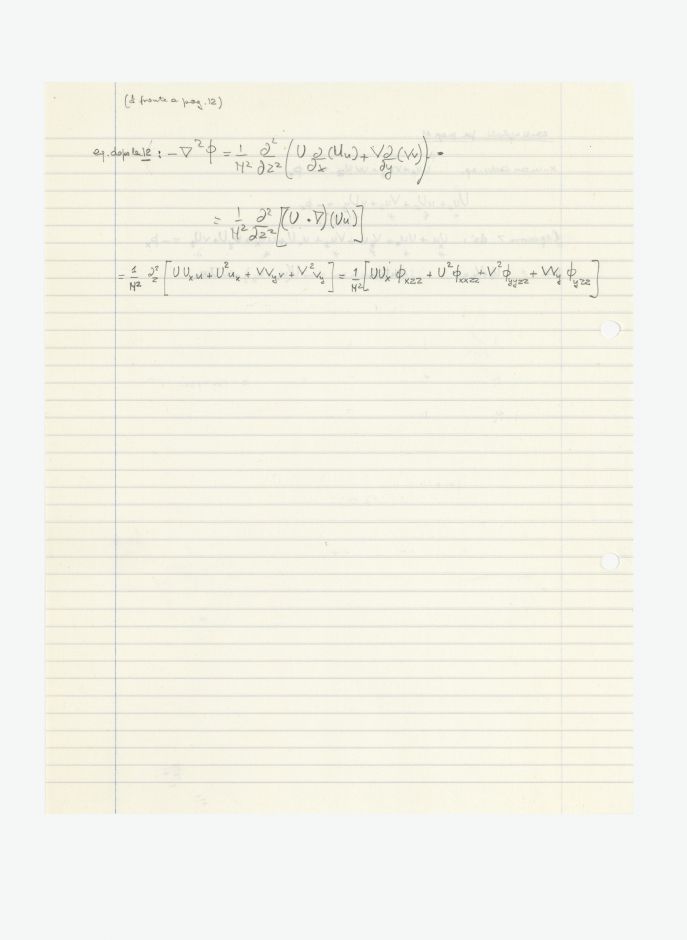 (di fronte a pag. 12)
eq. dopo la 12 : −∇²ϕ = 1/N² ∂²/∂z² (U ∂/∂x (Uu) + V ∂/∂y (Vv)) •
= 1/N² ∂²/∂z² [(U · ∇) (Uu)]
= 1/N² ∂²/z [UUₓu + U²uₓ + VV_y v + V²v_y] = 1/N² [UUₓ ϕ_xzz + U²ϕ_xxzz + V²ϕ_yyzz + VV_y ϕ_yzz]